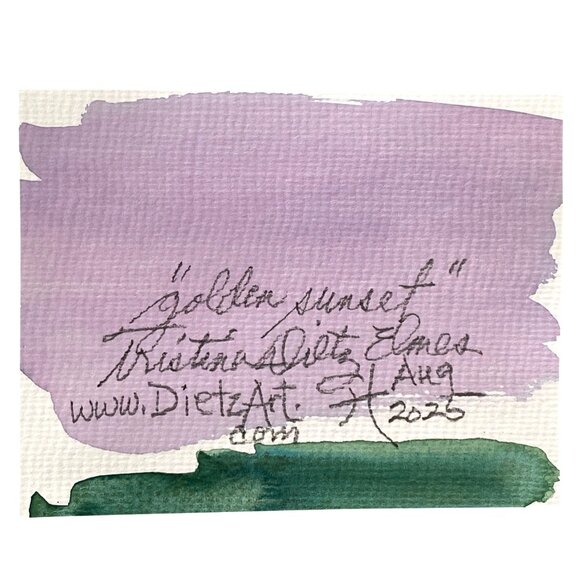 "golden sunset"
Kristina Dietz Elmes
www.DietzArt.
com
Aug
2025